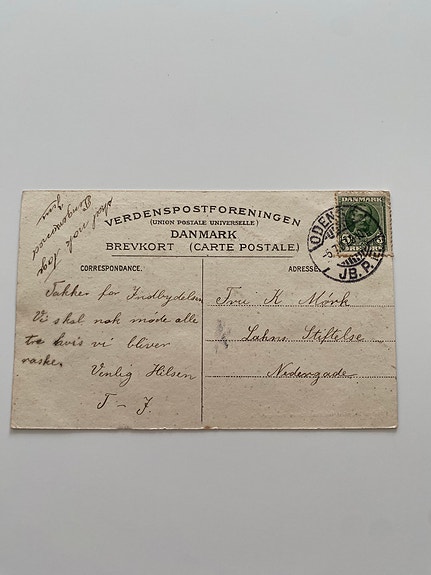 VERDENSPOSTFORENINGEN
(UNION POSTALE UNIVERSELLE)
DANMARK
BREVKORT (CARTE POSTALE)
CORRESPONDANCE.
Takker for Indbydelsen
Vi skal nok møde alle
tre hvis vi bliver
raske.
Venlig Hilsen
T - J.
skal nok
ADRESSE
K Mørk
Lahns Stiftelse
Nedergade
DANMARK
5 ØRE 5
ODENSE
JB.P.E